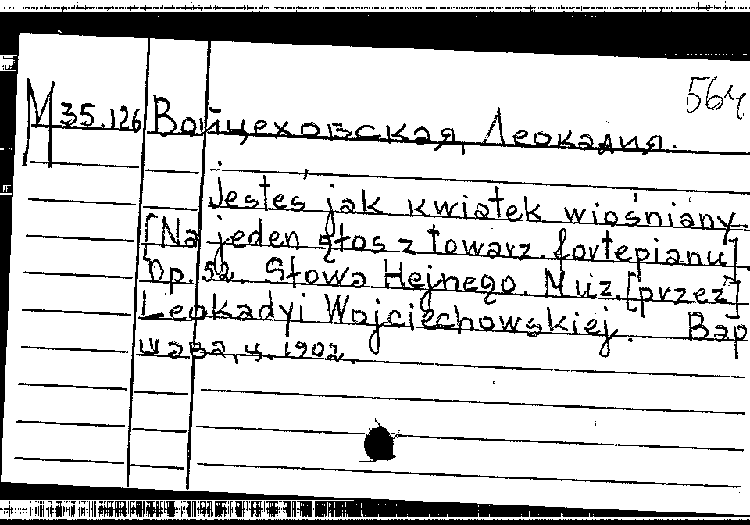 56ч
М 35.126 Войцеховская, Леокадия.
Jesteś jak kwiatek wiośniany.
[Na jeden głos z towarz. fortepianu]
Op. 52. Słowa Hejnego. Muz. [przez]
Leokadyi Wojciechowskiej. Вар
шава, ц. 1902.